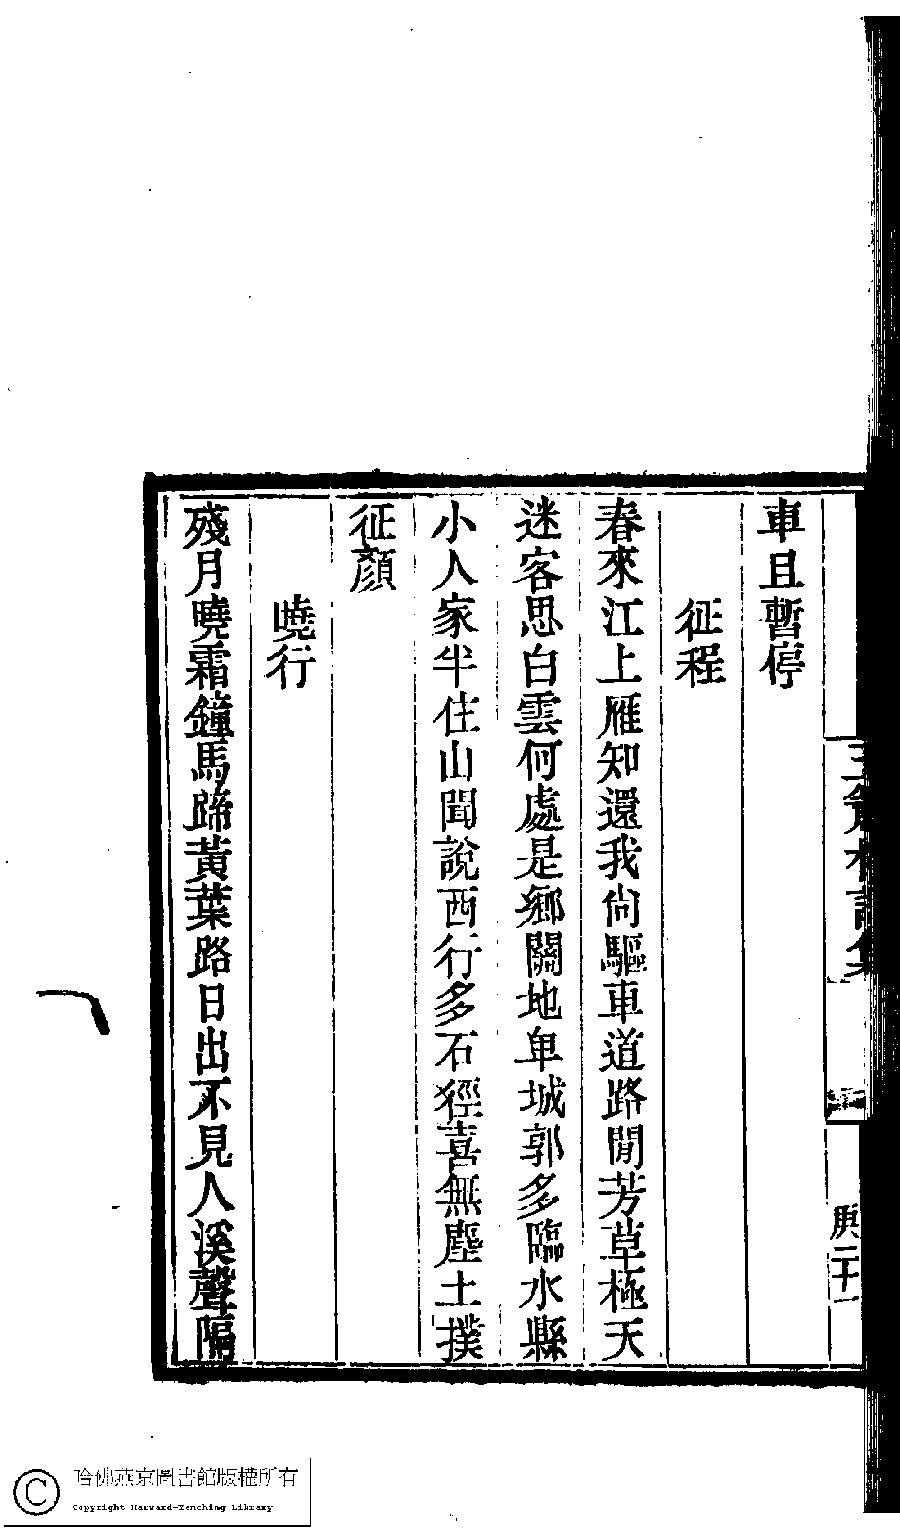 車且暫停
征程
春來江上雁知還我尙驅車道路閒芳草極天
迷客思白雲何處是鄉關地卑城郭多臨水縣
小人家半住山聞說西行多石徑喜無塵土撲
征顏
曉行
殘月曉霜鐘馬蹄黃葉路日出不見人溪聲隔
庚二十一
哈佛燕京圖書館版權所有
Copyright Harvard-Yenching Library